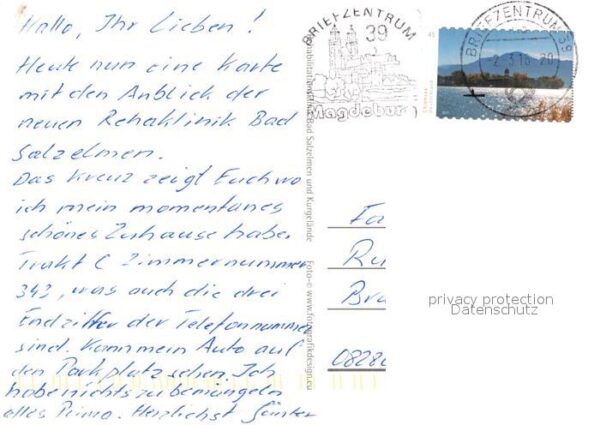 Hallo, Ihr Lieben!
Heute nun eine Karte
mit den Anblick der
neuen Rehaklinik Bad
Salzelmen.
Das Kreuz zeigt Euch wo
ich mein momentanes
schönes Zuhause habe.
Trakt C Zimmernummer
343, was auch die drei
Endziffer der Telefonnummer
sind. Kann mein Auto auf
den Parkplatz sehen. Ich
habe nichts zu bemängeln
alles Prima. Herzlichst Günter
BRIEFZENTRUM
39
Magdeburg
BRIEFZENTRUM 39
45
Rehabilitationsklinik Bad Salzelmen und Kurgelände
Foto-© www.fotografikdesign.eu
Fa
Ru
Bra
0828
privacy protection
Datenschutz